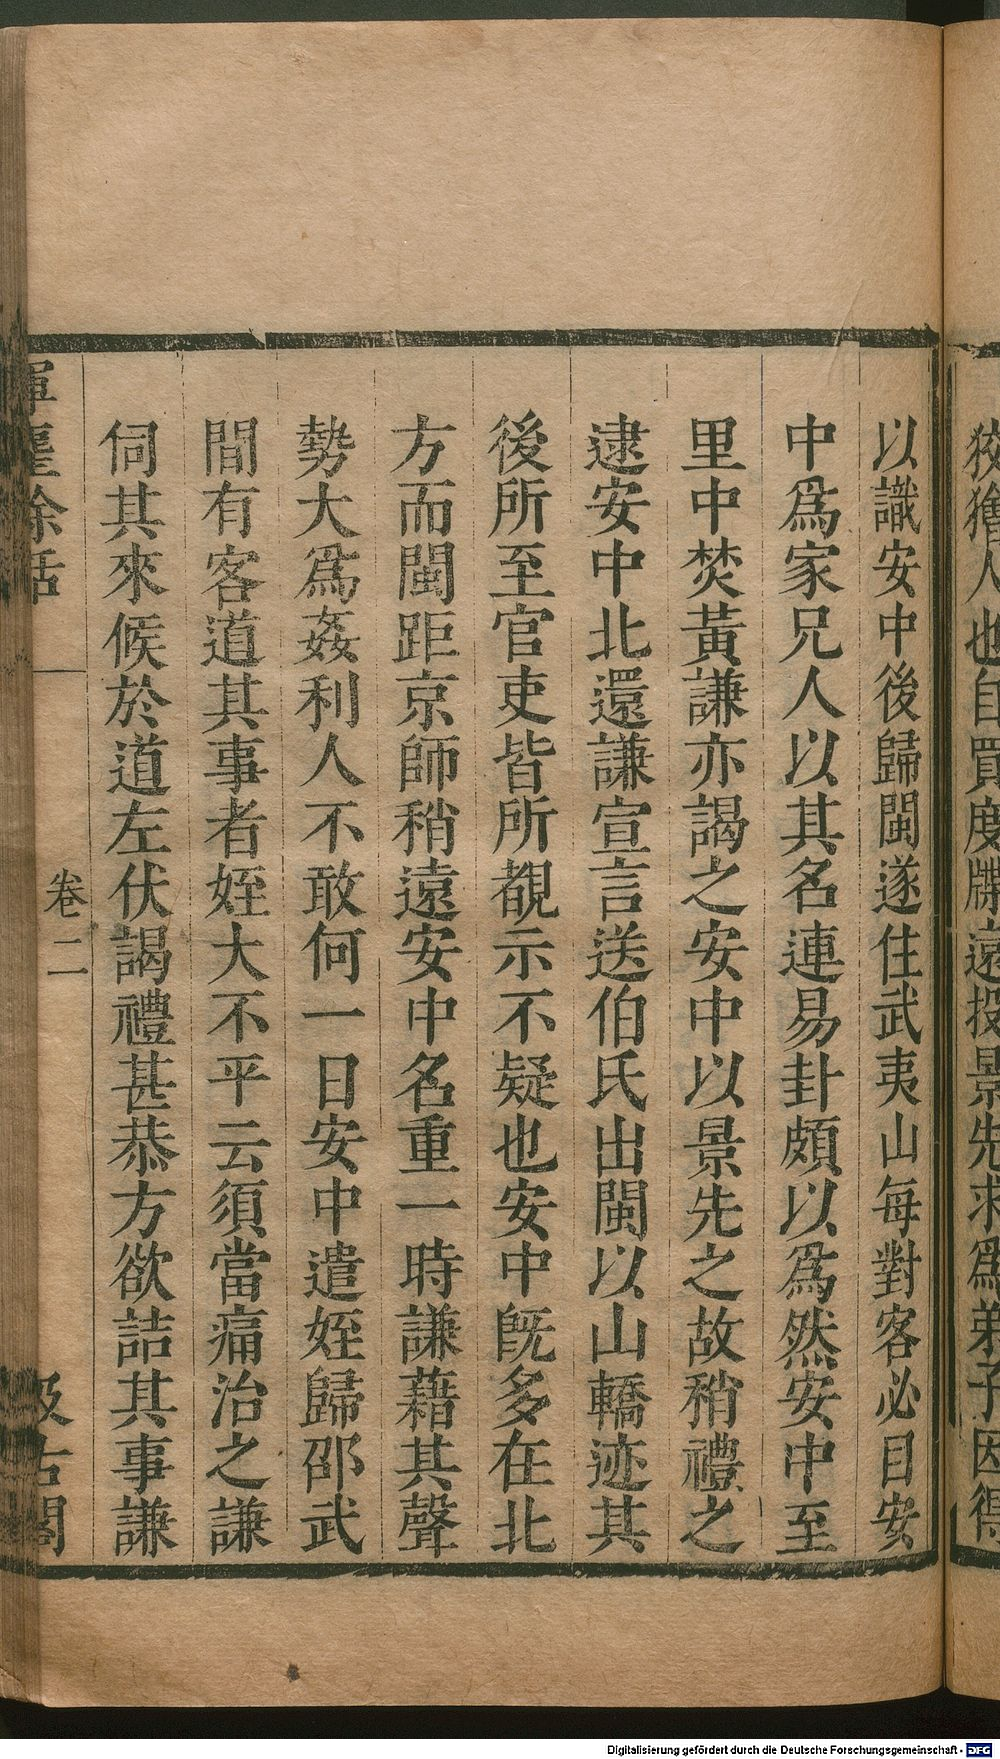 狡獪人也自買度牒遠投景先求爲弟子因得
以識安中後歸閩遂住武夷山每對客必目安
中爲家兄人以其名連易卦頗以爲然安中至
里中焚黃謙亦謁之安中以景先之故稍禮之
逮安中北還謙宣言送伯氏出閩以山轎迹其
後所至官吏皆所覩示不疑也安中旣多在北
方而閩距京師稍遠安中名重一時謙藉其聲
勢大爲姦利人不敢何一日安中遣姪歸邵武
間有客道其事者姪大不平云須當痛治之謙
伺其來候於道左伏謁禮甚恭方欲詰其事謙
揮麈餘話
卷二
汲古閣
Digitalisierung gefördert durch die Deutsche Forschungsgemeinschaft - DFG